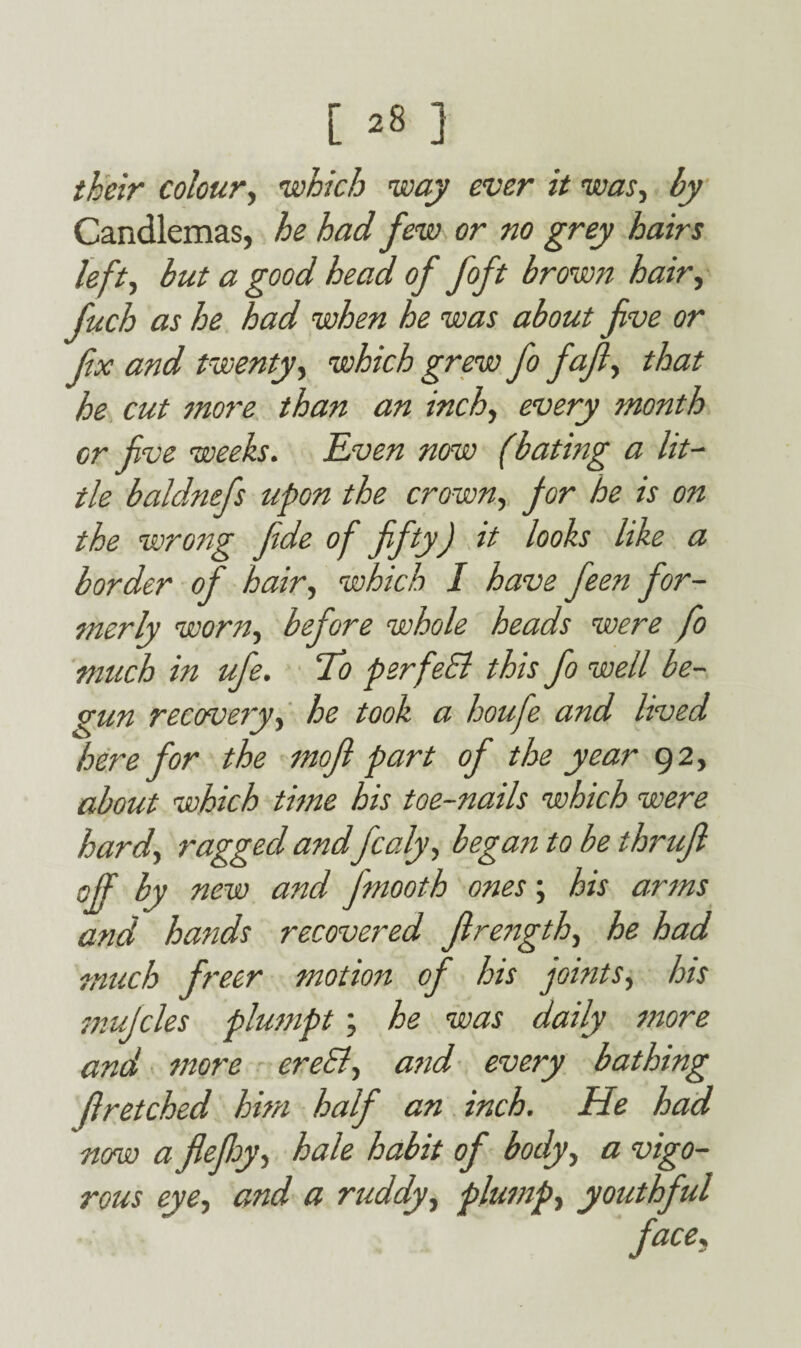 [ 28 ]
their colour, which way ever it was, by
Candlemas, he had few or no grey hairs
left, but a good head of ſoft brown hair,
ſuch as he had when he was about five or
ſix and twenty, which grew ſo faſt, that
he cut more than an inch, every month
or five weeks. Even now (bating a lit-
tle baldneſs upon the crown, for he is on
the wrong ſide of fifty) it looks like a
border of hair, which I have ſeen for-
merly worn, before whole heads were ſo
much in uſe. To perfect this ſo well be-
gun recovery, he took a houſe and lived
here for the moſt part of the year 92,
about which time his toe-nails which were
hard, ragged and ſcaly, began to be thruſt
off by new and ſmooth ones; his arms
and hands recovered ſtrength, he had
much freer motion of his joints, his
muſcles plumpt; he was daily more
and more erect, and every bathing
ſtretched him half an inch. He had
now a fleſhy, hale habit of body, a vigo-
rous eye, and a ruddy, plump, youthful
face,